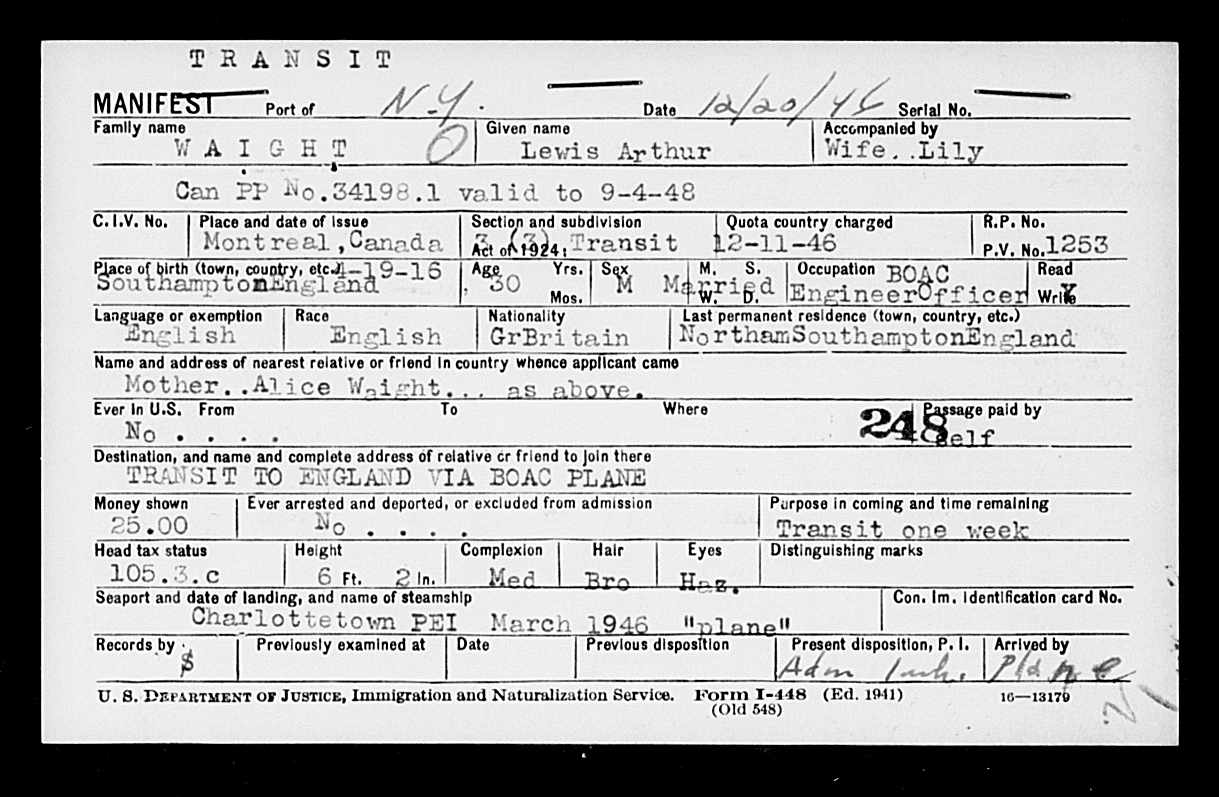 TRANSIT
MANIFEST Port of N.Y. Date 12/20/46 Serial No.
Family name Given name Accompanied by
WAIGHT O Lewis Arthur Wife..Lily
Can PP No.34198.1 valid to 9-4-48
C.I.V. No. Place and date of issue Section and subdivision Quota country charged R.P. No.
Montreal,Canada 3 (3) Transit 12-11-46
Act of 1924: P.V. No. 1253
Place of birth (town, country, etc.) 4-19-16 Age Yrs. Sex M. S. Occupation BOAC Read
SouthamptonEngland 30 Mos. M Married W. D. EngineerOfficer Write X
Language or exemption Race Nationality Last permanent residence (town, country, etc.)
English English GrBritain NorthamSouthamptonEngland
Name and address of nearest relative or friend in country whence applicant came
Mother..Alice Waight... as above.
Ever in U.S. From To Where Passage paid by
No . . . . 248 Self
Destination, and name and complete address of relative or friend to join there
TRANSIT TO ENGLAND VIA BOAC PLANE
Money shown Ever arrested and deported, or excluded from admission Purpose in coming and time remaining
25.00 No . . . . Transit one week
Head tax status Height Complexion Hair Eyes Distinguishing marks
105.3.c 6 Ft. 2 In. Med Bro Haz.
Seaport and date of landing, and name of steamship Con. Im. Identification card No.
Charlottetown PEI March 1946 "plane"
Records by Previously examined at Date Previous disposition Present disposition, P. I. Arrived by
$ Adm Plane
U. S. Department of Justice, Immigration and Naturalization Service. Form I-448 (Ed. 1941) 16—13179
(Old 548)